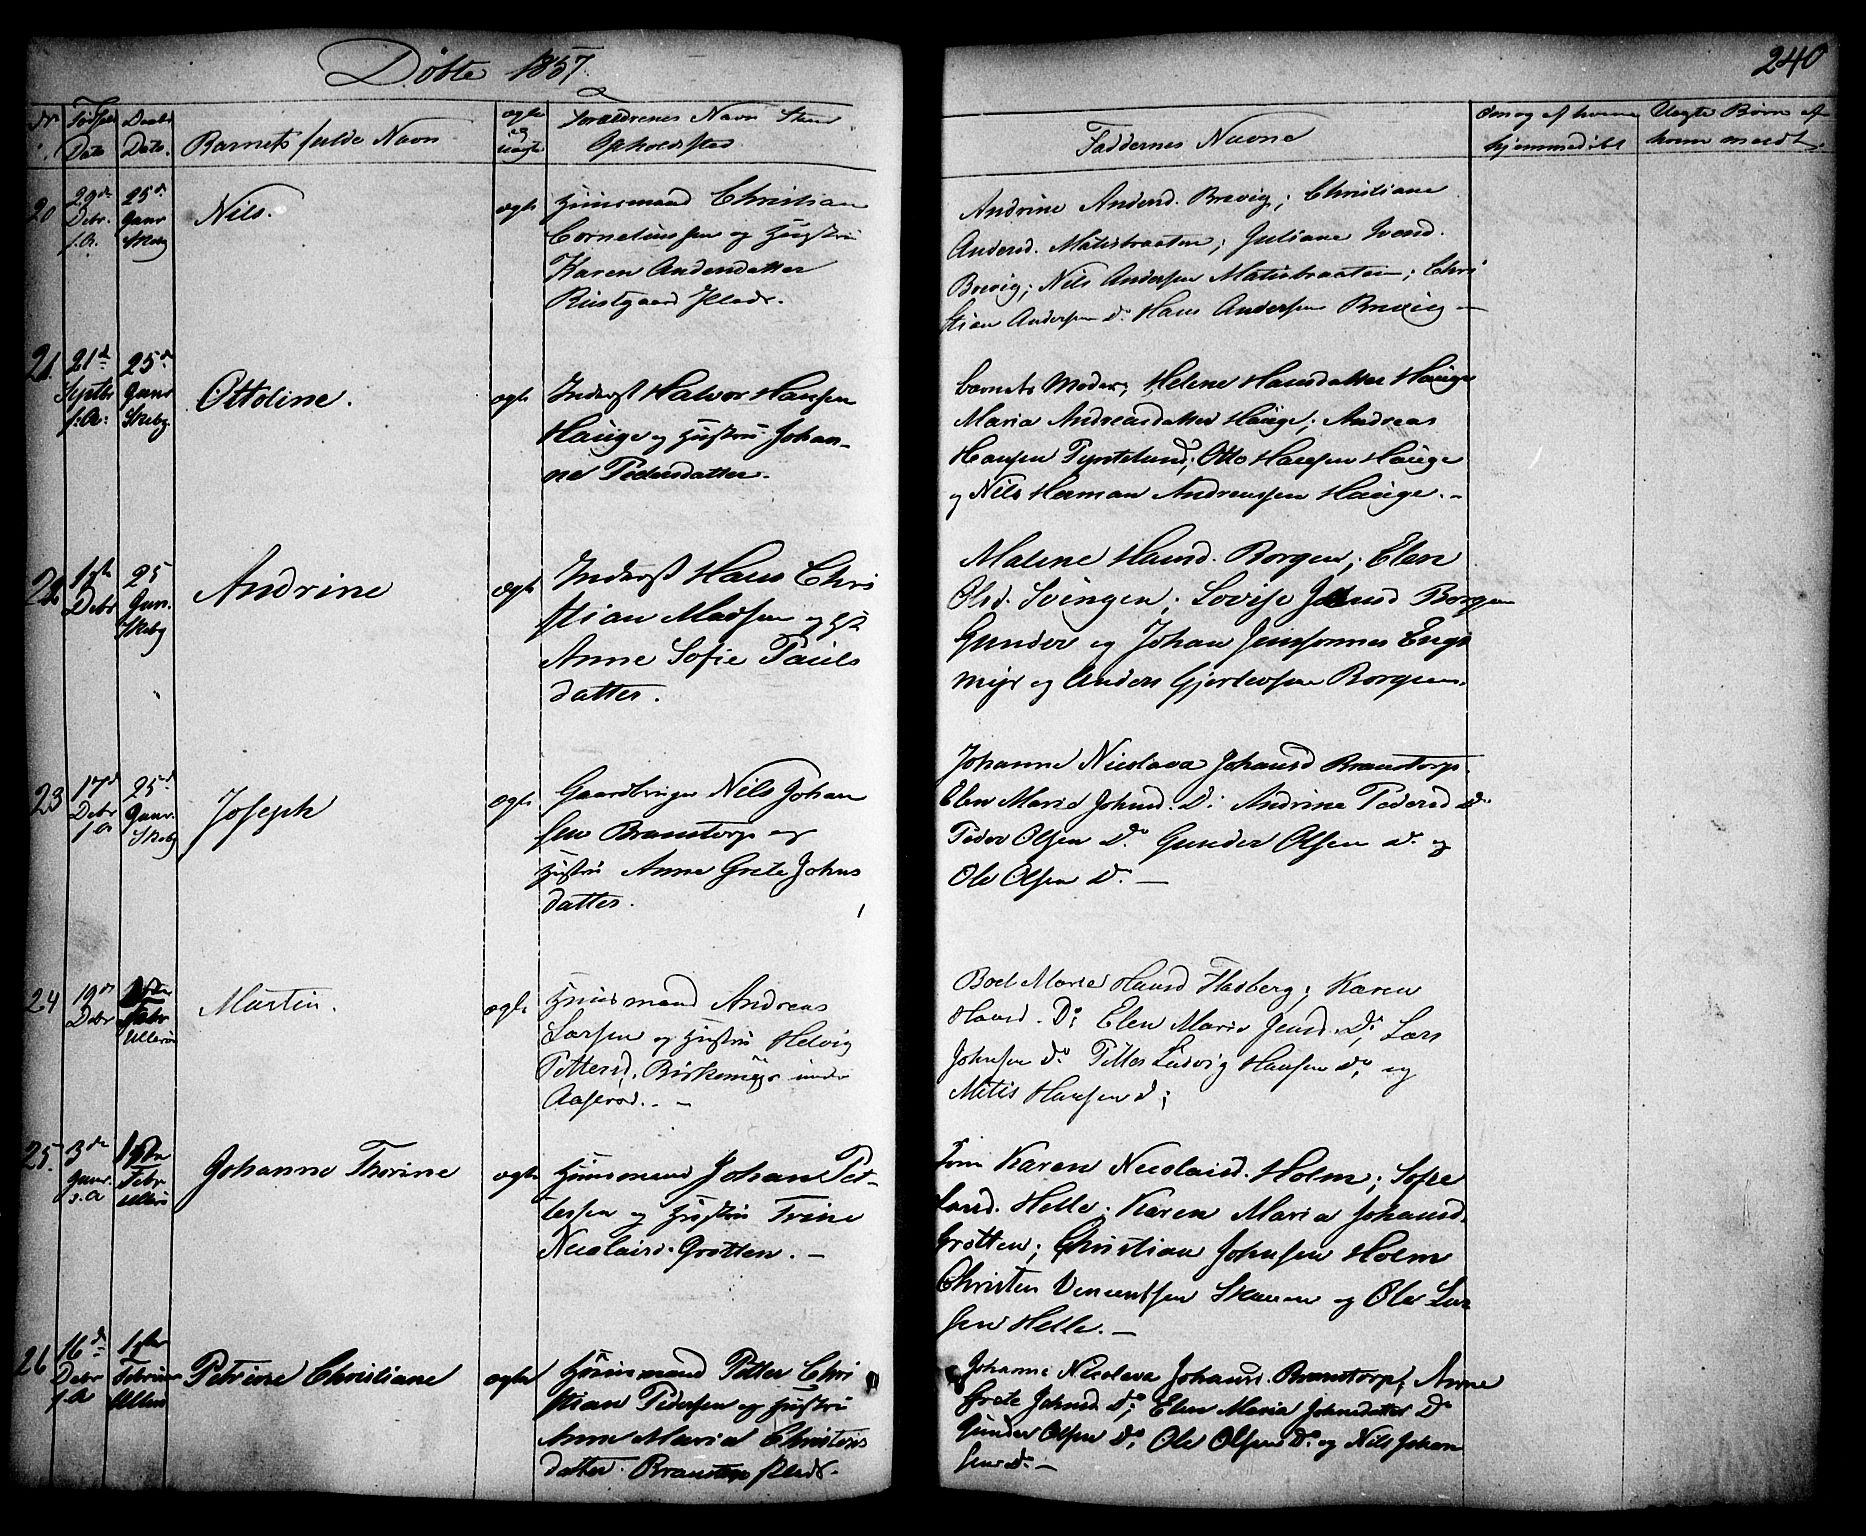 Døbte 1857.
240
Nr
Fødsels
Date
Daabs
Date.
Barnets fulde Navn
ægte
og
uægte
Forældrenes Navn Stand
Opholdssted
Faddernes Navne
om og af hvem
hjemmedøbt
Uægte Børn af
hvem meldt.
20
29de
Debr.
f.A.
25de
Janur
Skebg
Nils.
ægte
Huusmand Christian
Corneliussen og Hustru
Karen Andersdatter
Rustgaard Plads.
Andrine Andersd. Brevig; Christiane
Andersd. Matistraaten; Juliane Iversd.
Brevig; Nils Andersen Matistraaten; Chri
stian Andersen do. Hans Andersen Brevig —
21.
21d
Septbr
f:A:
25de
Janur
Skebg.
Ottoline.
ægte
Inderst Halvor Hansen
Hauge og Hustru Johan-
ne Pedersdatter.
barnets Moder; Helene Hansdatter Hauge
Maria Andreasdatter Hauge; Andreas
Hansen Tyntelund; Otto Hansen Hauge
og Nils Herman Andreassen Hauge. -
22
Debr
25
Janr.
Skebg
Andrine
ægte
Inderst Hans Chri
stian Madsen og Hst
Anne Sofie Pauls
datter.
Malene Hansd. Borgen; Elen
Olsd. Svingen; Lovise Jensd Borgen
Gunder og Johan Jenssønnes Enge
myr og Anders Gjertsen Borgen.
23
17d
Debr
f.A
25d
Janur.
Skebg
Joseph
ægte
Gaardbruger Nils Johan
sen Branstorp og
Hustru Anne Grete Johns
datter.
Johanne Nicolava Johansd Branstorp.
Elen Marie Johnsd. Do; Andrine Pedersd Do
Peder Olsen Do. Gunder Olsen do. og
Ole Olsen Do. —
24
19de
Debr
1ste
Febr
Ullerøi
Martin.
ægte
Huusmand Andreas
Larsen og Hustru Helvig
Pettersd. Birkemyr under
Aaserød. -
Boel Marie Hansd Fladberg; Karen
Hansd. Do; Elen Marie Jensd. Do; Lars
Johnsen do. Petter Ludvig Hansen do, og
Metis Hansen d;
25.
3de
Januar
s.A
1ste
Febr
Ullerøi
Johanne Thorine
ægte
Huusmand Johan Pet-
tersen og Hustru Trine
Nicolaisd. Grotten. —
Karen Nicolaisd. Holm; Sofie
Larsd. Helle; Karen Maria Johansd.
Grotten; Christian Johnsen Holm
Christen Vincentsen Skauen og Ole Lar
sen Helle. —
26
16d
Debr
f.A
1ste
Februar
Ullerøi
Petrine Christiane
ægte
Huusmand Petter Chri
stian Pedersen og Hustru
Anne Maria Christens
datter. Branstorp Plads.
Johanne Nicolava Johansd. Branstorp; Anne
Grete Johnsd Do; Elen Maria Johnsdatter Do
Gunder Olsen Do; Ole Olsen Do. og Nils Johan
sen Do. —